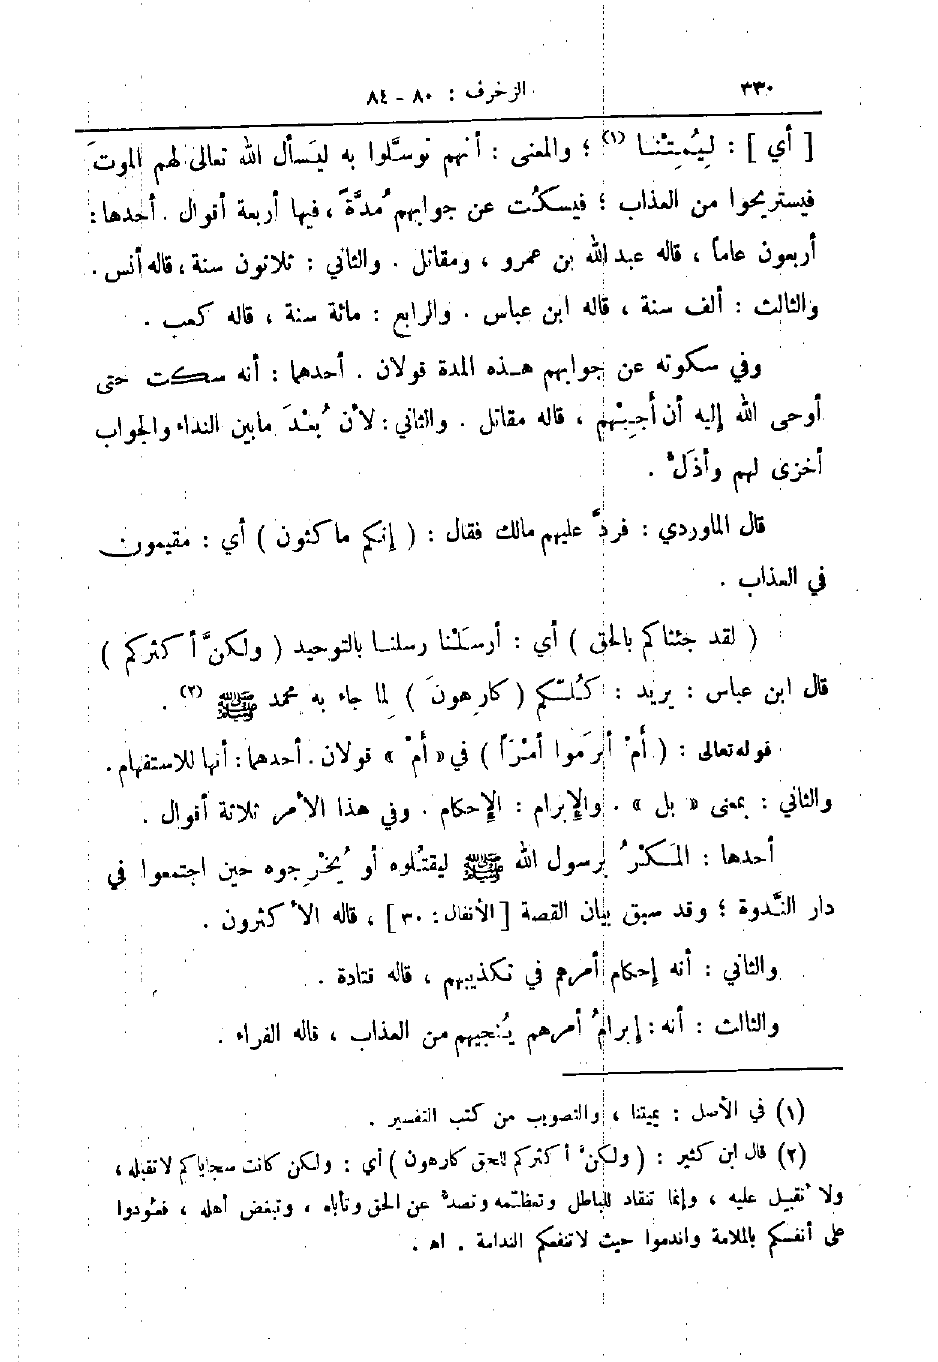 ٣٣٠
الزخرف : ٨٠ - ٨٤
[ أي ] : لِيُمِتْنا (١) ؛ والمعنى : أنهم توسَّلوا به ليَسأل الله تعالى لهم الموتَ
فيستريحوا من العذاب ؛ فيسكُت عن جوابهم مُدَّةً ، فيها أربعة أقوال . أحدها :
أربعون عاماً ، قاله عبد الله بن عمرو ، ومقاتل . والثاني : ثلاثون سنة ، قاله أنس .
والثالث : ألف سنة ، قاله ابن عباس . والرابع : مائة سنة ، قاله كعب .
وفي سكوته عن جوابهم هذه المدة قولان . أحدهما : أنه سكت حتى
أوحى الله إليه أن أَجِبْهم ، قاله مقاتل . والثاني : لأن بُعْدَ ما بين النداء والجواب
أخزى لهم وأذَلُّ .
قال الماوردي : فردَّ عليهم مالك فقال : ( إنكم ماكثون ) أي : مقيمون
في العذاب .
( لقد جئناكم بالحق ) أي : أرسَلْنا رسلنا بالتوحيد ( ولكنَّ أكثركم )
قال ابن عباس : يريد : كُلّكم ( كارهونَ ) لِما جاء به محمد ﷺ (٢) .
قوله تعالى : ( أمْ أبرَموا أمْراً ) في « أمْ » قولان . أحدهما : أنها للاستفهام .
والثاني : بمعنى « بل » . والإبرام : الإحكام . وفي هذا الأمر ثلاثة أقوال .
أحدها : المَكْرُ برسول الله ﷺ ليقتُلوه أو يُخْرِجوه حين اجتمعوا في
دار النَّدوة ؛ وقد سبق بيان القصة [ الأنفال : ٣٠ ] ، قاله الأكثرون .
والثاني : أنه إحكام أمرهم في تكذيبهم ، قاله قتادة .
والثالث : أنه : إبرامُ أمرهم يُنجيهم من العذاب ، قاله الفراء .
(١) في الأصل : يميتنا ، والتصويب من كتب التفسير .
(٢) قال ابن كثير : ( ولكنّ أكثركم للحق كارهون ) أي : ولكن كانت سجاياكم لا تقبله ،
ولا تُقبِل عليه ، وإنما تنقاد للباطل وتعظّمه وتصدّ عن الحق وتأباه ، وتبغض أهله ، فعُودوا
على أنفسكم بالملامة واندموا حيث لا تنفعكم الندامة . اه .